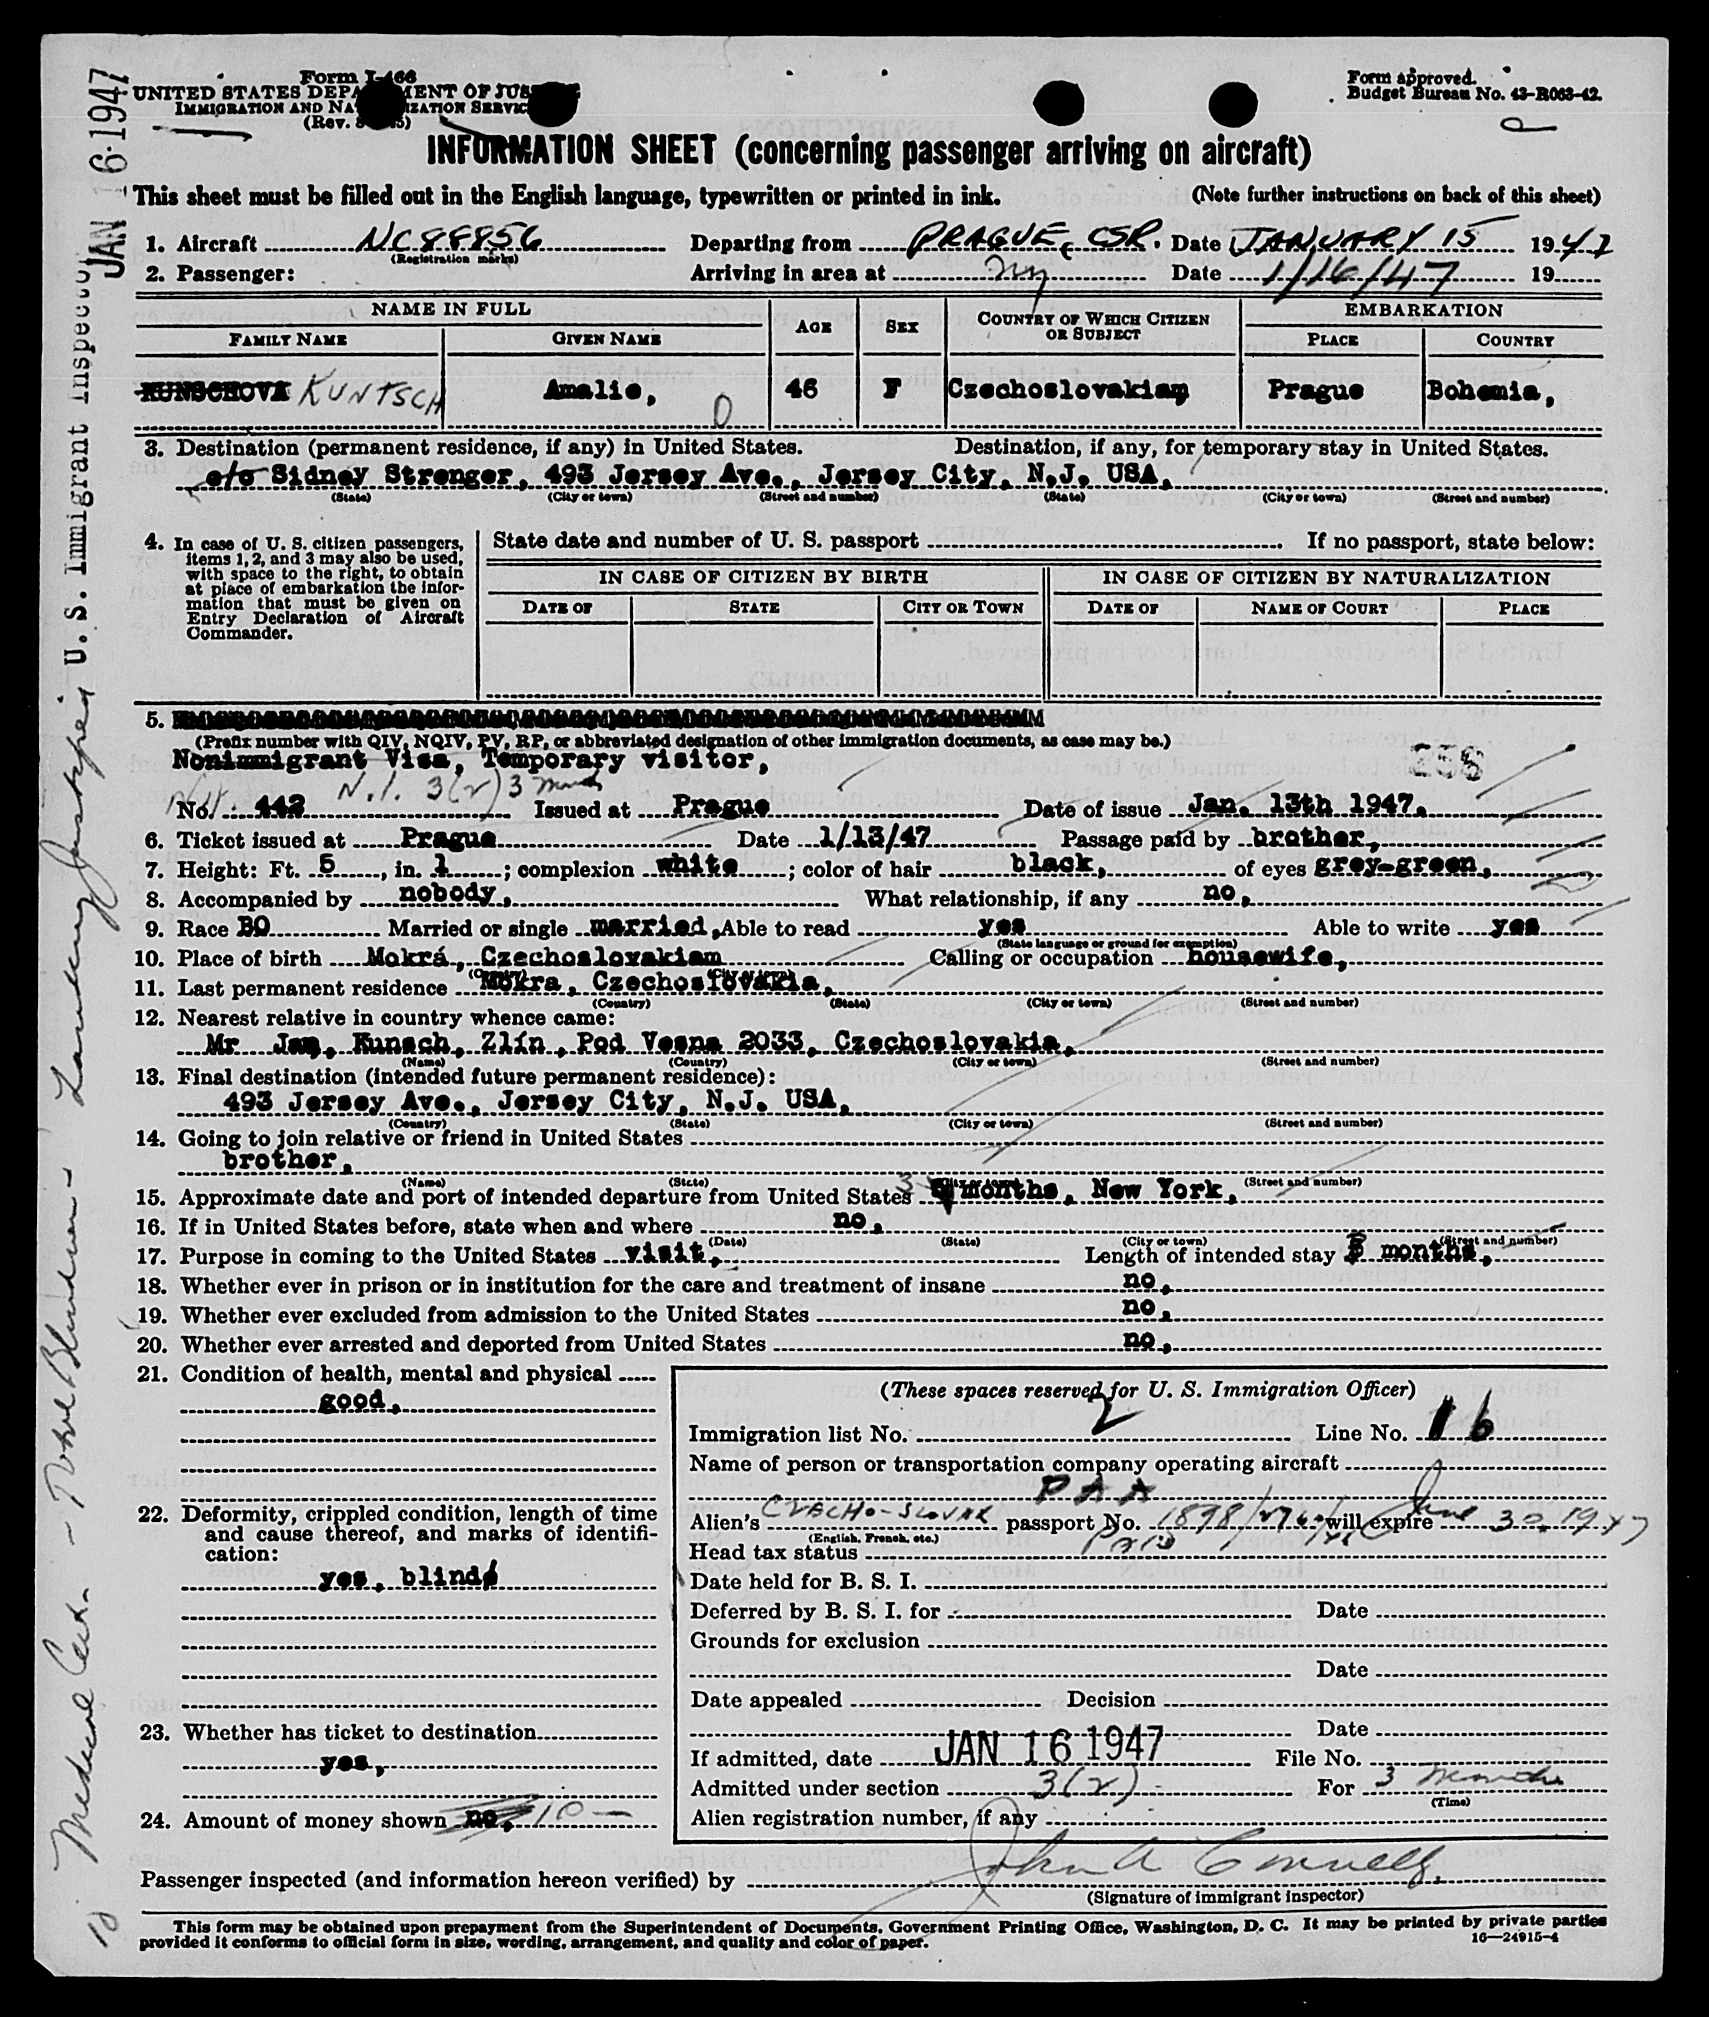 Form I-466
UNITED STATES DEPARTMENT OF JUSTICE
IMMIGRATION AND NATURALIZATION SERVICE
(Rev.
Form approved.
Budget Bureau No. 43-R063-42.
INFORMATION SHEET (concerning passenger arriving on aircraft)
This sheet must be filled out in the English language, typewritten or printed in ink. (Note further instructions on back of this sheet)
1. Aircraft NC88856 Departing from PRAGUE, CSR. Date JANUARY 15 1947
(Registration marks)
2. Passenger: Arriving in area at NY Date 1/16/47 19
NAME IN FULL AGE SEX COUNTRY OF WHICH CITIZEN OR SUBJECT EMBARKATION
FAMILY NAME GIVEN NAME PLACE COUNTRY
KUNSCHOVA KUNTSCH Amalie, 46 F Czechoslovakian, Prague Bohemia,
3. Destination (permanent residence, if any) in United States. Destination, if any, for temporary stay in United States.
c/o Sidney Strenger, 493 Jersey Ave., Jersey City, N.J. USA,
(State) (City or town) (Street and number) (State) (City or town) (Street and number)
4. In case of U. S. citizen passengers, items 1, 2, and 3 may also be used, with space to the right, to obtain at place of embarkation the information that must be given on Entry Declaration of Aircraft Commander.
State date and number of U. S. passport If no passport, state below:
IN CASE OF CITIZEN BY BIRTH IN CASE OF CITIZEN BY NATURALIZATION
DATE OF STATE CITY OR TOWN DATE OF NAME OF COURT PLACE
5.
(Prefix number with QIV, NQIV, PV, RP, or abbreviated designation of other immigration documents, as case may be.)
Nonimmigrant Visa, Temporary visitor,
N.I. 3(2) 3
No. 442 Issued at Prague Date of issue Jan. 13th 1947.
6. Ticket issued at Prague Date 1/13/47 Passage paid by brother,
7. Height: Ft. 5, in. 1; complexion white; color of hair black, of eyes grey-green,
8. Accompanied by nobody, What relationship, if any no,
9. Race BO Married or single married, Able to read yes Able to write yes
(State language or ground for exemption)
10. Place of birth Mokrá, Czechoslovakiam Calling or occupation housewife,
11. Last permanent residence Mokra, Czechoslovakia,
(Country) (State) (City or town) (Street and number)
12. Nearest relative in country whence came:
Mr Jan, Kunsch, Zlín, Pod Vesna 2033, Czechoslovakia,
(Name) (Country) (City or town) (Street and number)
13. Final destination (intended future permanent residence):
493 Jersey Ave., Jersey City, N.J. USA,
(Country) (State) (City or town) (Street and number)
14. Going to join relative or friend in United States
brother,
(Name) (State) (Street and number)
15. Approximate date and port of intended departure from United States 3 months, New York,
16. If in United States before, state when and where no,
(Date) (State) (City or town) (Street and number)
17. Purpose in coming to the United States visit, Length of intended stay 3 months,
18. Whether ever in prison or in institution for the care and treatment of insane no,
19. Whether ever excluded from admission to the United States no,
20. Whether ever arrested and deported from United States no,
21. Condition of health, mental and physical
good,
22. Deformity, crippled condition, length of time and cause thereof, and marks of identification:
yes, blind
23. Whether has ticket to destination
yes,
24. Amount of money shown no, 10 —
(These spaces reserved for U. S. Immigration Officer)
Immigration list No. 2 Line No. 16
Name of person or transportation company operating aircraft
PAA
Alien's CZECHO-SLOVAK passport No. will expire June 30, 1947
(English, French, etc.)
Head tax status
Date held for B. S. I.
Deferred by B. S. I. for Date
Grounds for exclusion
Date
Date appealed Decision
Date
If admitted, date JAN 16 1947 File No.
Admitted under section 3(2) For 3 Months
(Time)
Alien registration number, if any
Passenger inspected (and information hereon verified) by John A Connelly
(Signature of immigrant inspector)
This form may be obtained upon prepayment from the Superintendent of Documents, Government Printing Office, Washington, D. C. It may be printed by private parties
provided it conforms to official form in size, wording, arrangement, and quality and color of paper.
16—24915-4
JAN 16 1947
U. S. Immigrant Inspector
Medical Cert. - Total Blindness -